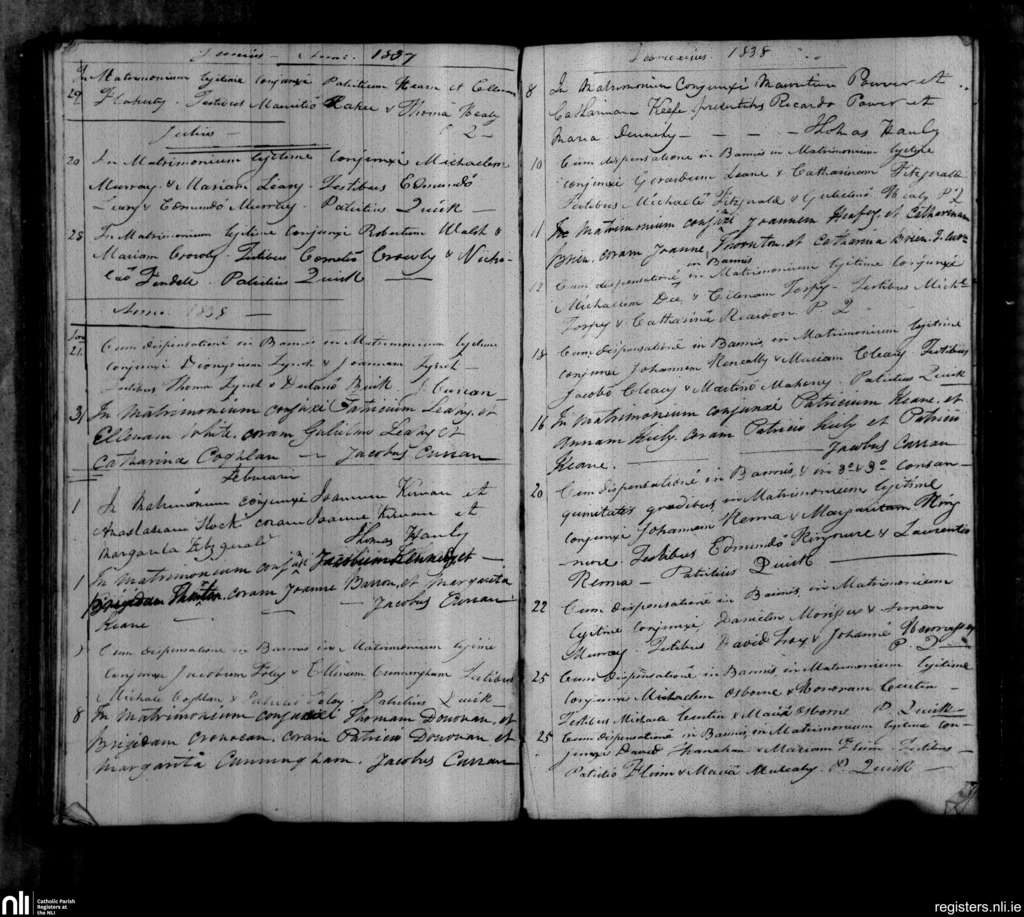 Junius - Anni 1837
In Matrimonium legitime conjunxi Patritium Keane et Ellenam
29 Flaherty. Testibus Mauritio & Thoma Healy
P Q
Julius
20 In Matrimonium legitime conjunxi Michaelem
Murray & Mariam Leary. Testibus Edmundo
Leary & Edmundo Murray. Patritius Quirk
28 In Matrimonium legitime conjunxi Robertum Walsh &
Mariam Crowly. Testibus Cornelio Crowly & Nicho-
lao Pendell. Patritius Quirk
Anno 1838
Jan 21. Cum dispensatione in Bannis in Matrimonium legitime
conjunxi Dionysium Lynch & Joannam Lynch
Testibus Thoma Lynch & Declano Quirk J. Curran
31 In Matrimonium conjunxi Patricium Leary, et
Ellenam White. coram Gulielmo Leary et
Catharina Coghlan Jacobus Curran
Februarii
1 In Matrimonium conjunxi Joannem Kirwan et
Anastasiam Flock coram Joanne Kirwan et
Margarita Fitzgerald Thomas Hanly
1 In Matrimonium conjunxi Jacobum Kennedy et
Brigidam coram Joanne Barron, et Margarita
Keane Jacobus Curran
Cum dispensatione in Bannis in Matrimonium legitime
conjunxi Jacobum Foley & Ellenam Cunningham Testibus
Michaele Coghlan & Foley Patritius Quirk
8 In Matrimonium conjunxi Thomam Donovan, et
Brigidam Cronican. coram Patricio Donovan et
Margarita Cunningham. Jacobus Curran
Februarius 1838
8 In Matrimonium Conjunxi Mauritium Power et
Catharinam Keefe presentibus Ricardo Power et
Maria Dennehy Thomas Hanly
10 Cum dispensatione in Bannis in Matrimonium legitime
conjunxi Gerardum Leane & Catharinam Fitzgerald
Testibus Michaele Fitzgerald & Gulielmo Healy P Q
11 In Matrimonium conjunxi Joannem Heafey, et Catharinam
Brien, coram Joanne Thornton, et Catharina Brien J. Curran
in Bannis
12 Cum dispensatione in Matrimonium legitime conjunxi
Michaelem Dee, & Ellenam Torpy. Testibus Michl
Torpey & Catharina Reardon P Q
18 Cum dispensatione in Bannis, in Matrimonium legitime
conjunxi Johannem Keneally & Mariam Cleary Testibus
Jacobo Cleary & Martino Mahony. Patritius Quirk
16 In Matrimonium conjunxi Patricium Keane, et
Annam Huly, coram Patricio Huly et Patricio
Keane. Jacobus Curran
20 Cum dispensatione in Bannis, & in 3o & 3o consan-
guinitatis gradibus, in Matrimonium legitime
conjunxi Johannem Kenna & Margaritam Ring
nore. Testibus Edmundo Ringnore & Laurentio
Kenna - Patritius Quirk
22 Cum dispensatione in Bannis, in Matrimonium
legitime conjunxi, Danielem Morissy &
Murray Testibus David Foxy & Johanne
P. Q
25 Cum dispensatione in Bannis, in Matrimonium legitime
conjunxi Michaelem Osborne & Honoram Curtin
Testibus Michaele Curtin & Maria Osborne P. Quirk
25 Cum dispensatione in Bannis, in Matrimonium legitime con-
junxi David Shanahan & Mariam Flinn. Testibus
Patritio Flinn & Maria Mulcahy. P. Quirk
nli Catholic Parish
Registers at
the NLI
registers.nli.ie